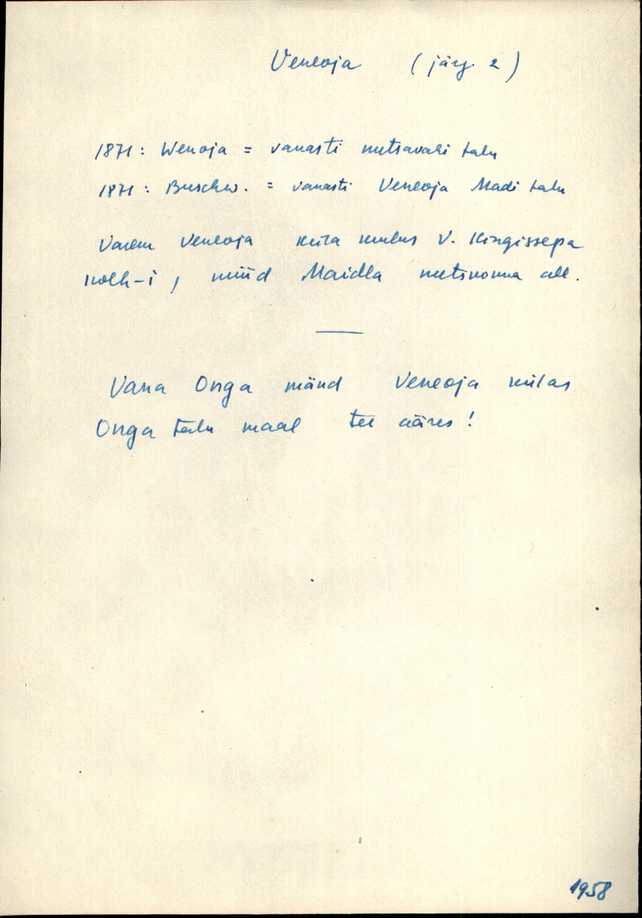 Veneoja (järg. 2)
1871: Wenoja = vanasti metsavahi talu
1871: Buschw. = vanasti Veneoja Madi talu
Varem Veneoja küla kulus V. Kingissepa
kolh-i, nüüd Maidla metskonna all.
Vana Onga mänd Veneoja külas
Onga talu maal tee ääres!
1958